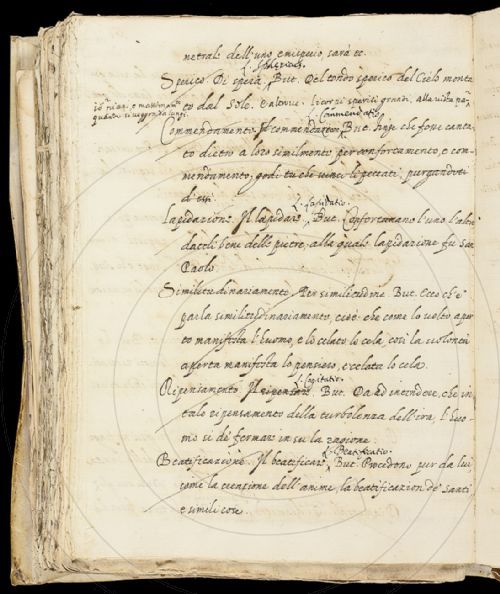 netrali dell'uno emisperio, sarà ec.
L. Sphericus.
Sperico. Di spera. But. Del tondo sperico del Cielo monta
to dal Sole. E altrove. i corpi sperici grandi, alla vista pa
Commendatio.
Commendamento. Il commendare. But. finge che fosse canta
to dietro a loro similmente, per confortamento, e com-
mendamento; godi tu che vinci li peccati, purgandoti
di essi
L. Lapidatio.
Lapidazione. Il lapidare. But. Confortavano l'uno l'altro
dargli bene delle pietre, alla quale lapidazione fu San
Paolo
Similitudinariamente. Per similitudine. But. Ecco che
parla similitudinariamente, cioè che come lo volto aper
to manifesta l'huomo, e lo celato lo cela, così la violenza
aperta manifesta lo pensiero, e celata lo cela.
Ripensamento. Il ripensare. But. Da ad intendere, che in
talo ripensamento della turbolenza dell'ira, l'huo-
mo si de' fermar in su la ragione.
L. Beatificatio.
Beatificazione. Il beatificare. But. Procedono pur da lui
come la creazione dell'anime, la beatificazion de' Santi
e simili cose